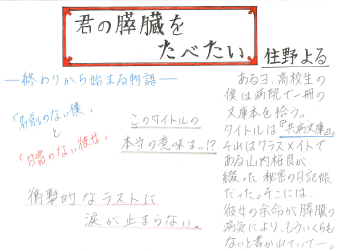 君の膵臓を
たべたい。
住野よる
―終わりから始まる物語―
「名前のない僕」
と
「日常のない彼女」
このタイトルの
本守の意味は…!?
衝撃的なラストに
涙が止まらない。
ある日、高校生の
僕は病院で一冊の
文庫本を拾う。
タイトルは『共病文庫』。
それはクラスメイトで
ある山内桜良が
綴った秘密の日記帳
だった。そこには、
彼女の余命が膵臓の
病気により、もういくらも
ないと書かれていて―。